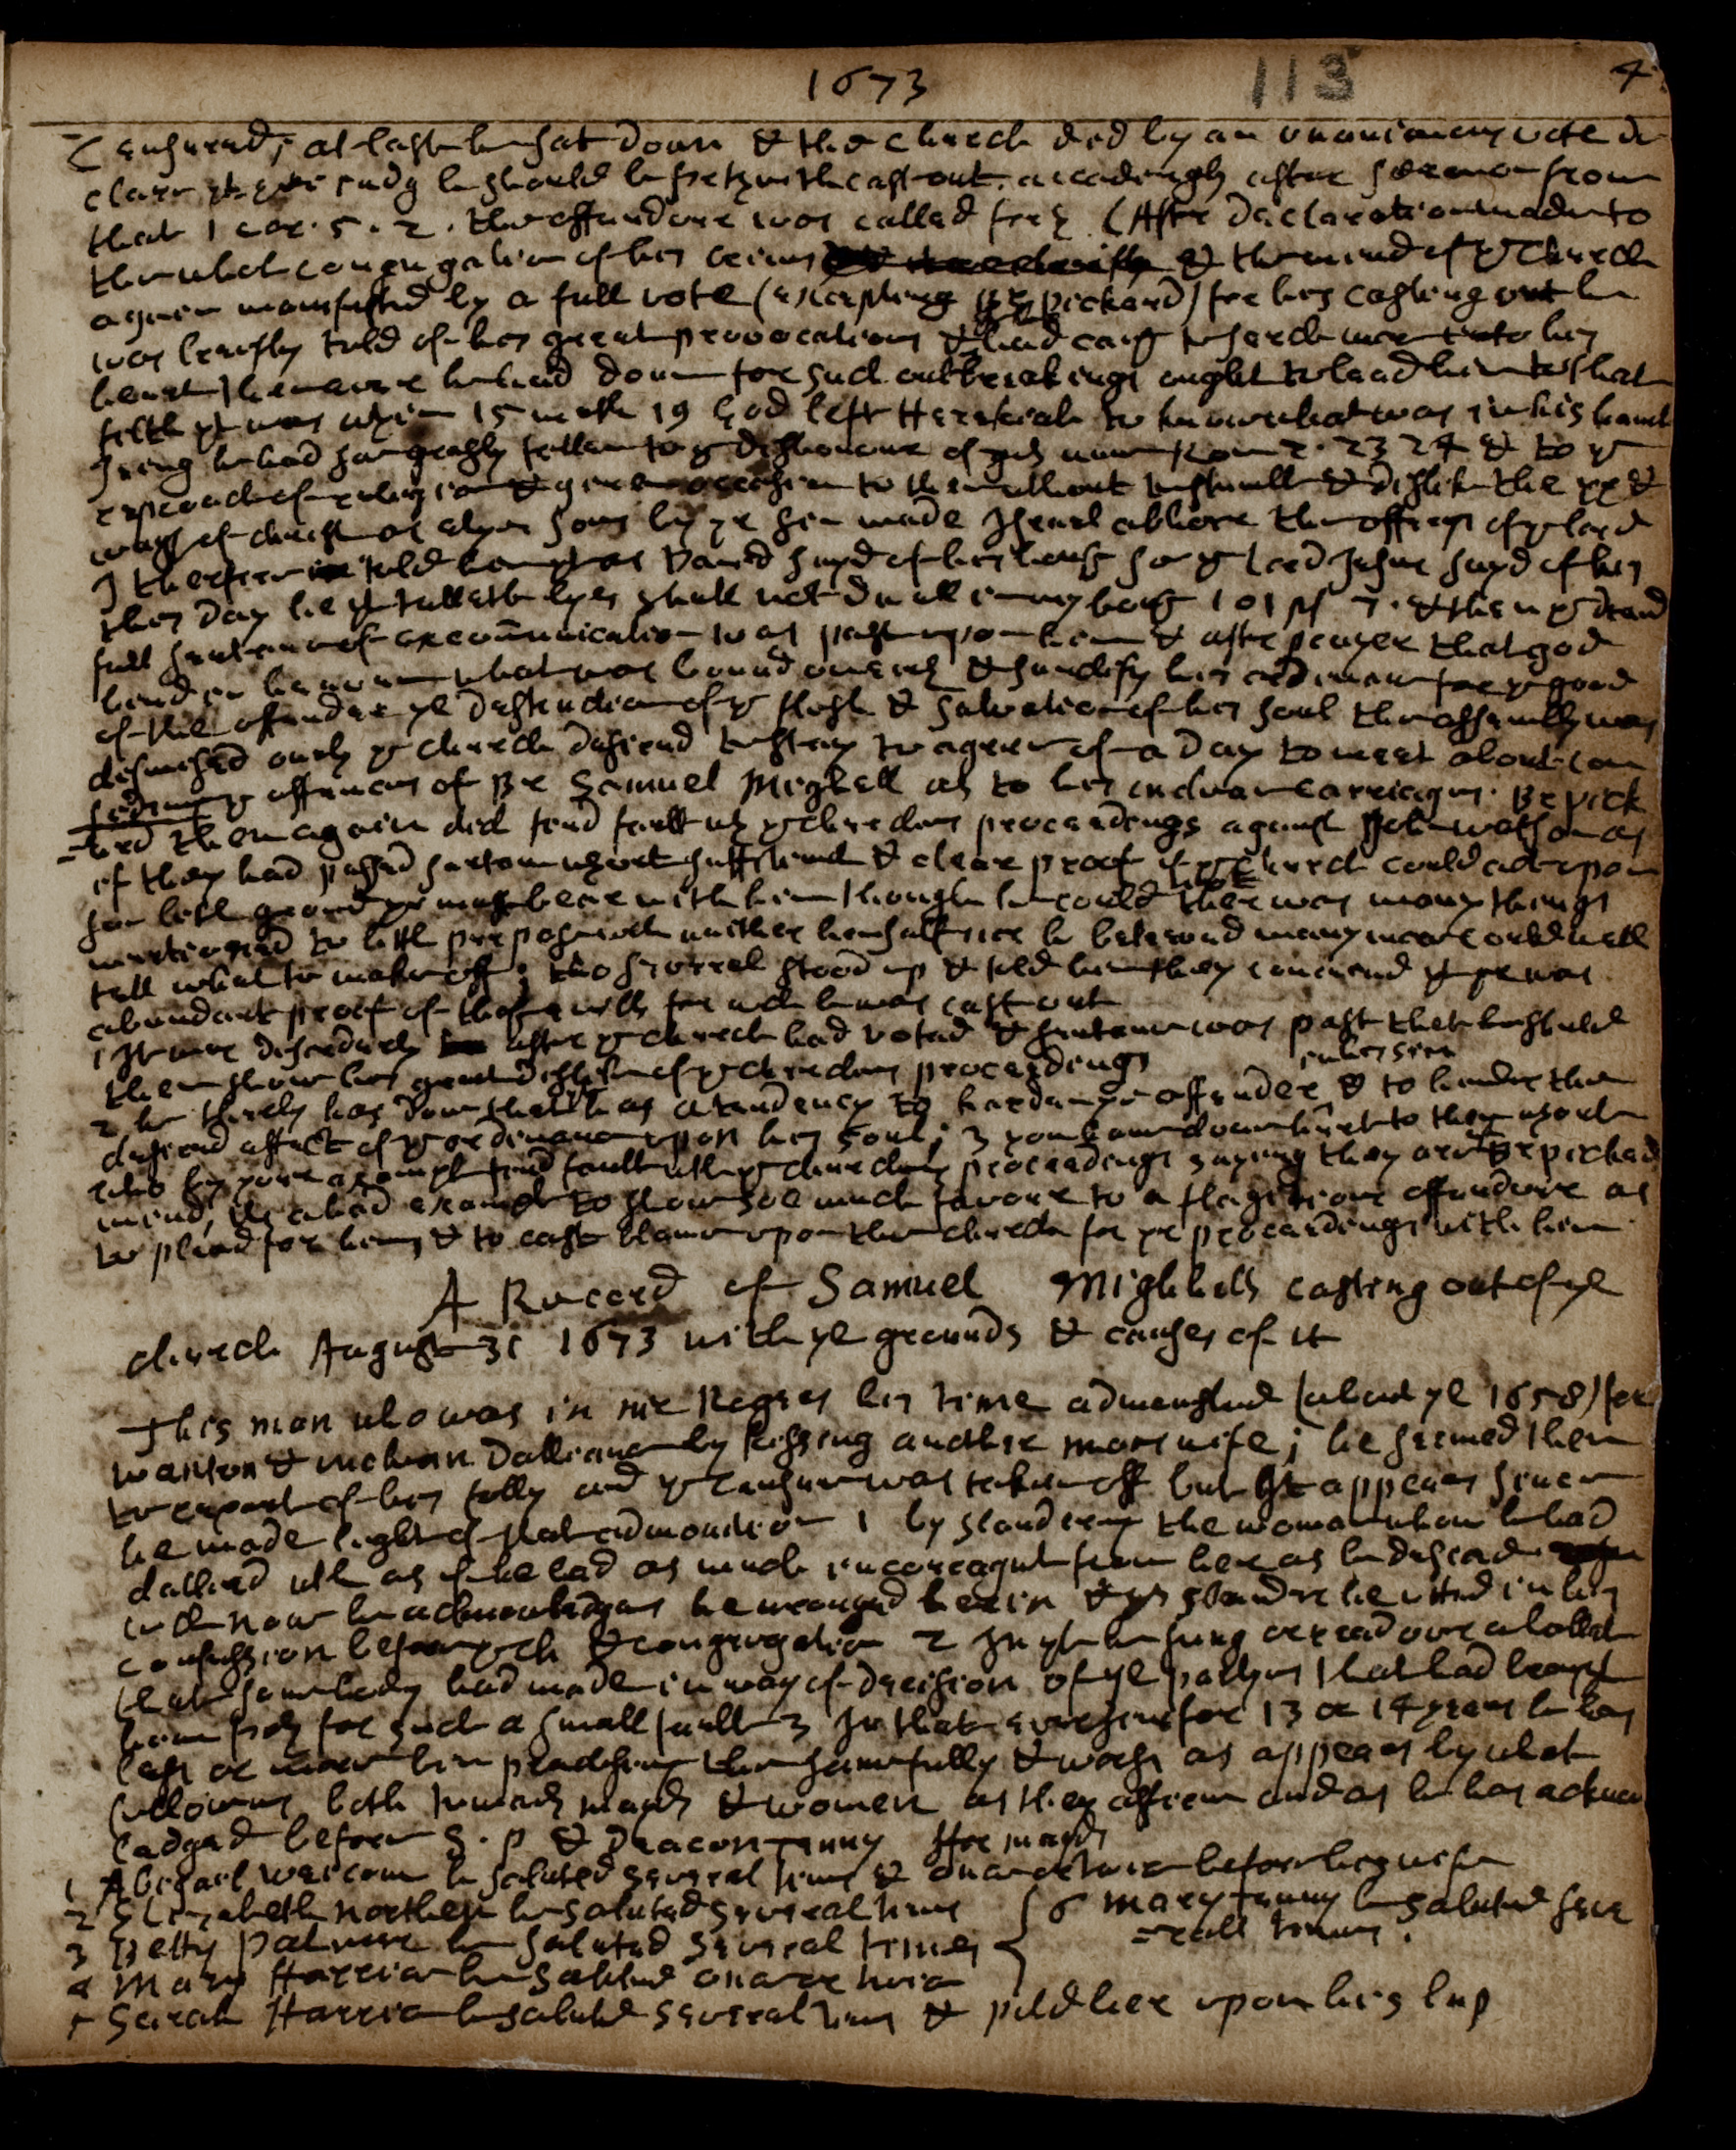 1673 113 4
Censured; at last he sat down & the Church did by an unanimous vote de
clare yt ye judg he should be forthwith cast out. accordingly after sermon from
that 1 cor. 5. 2. the offendore was called forth (After Declaration made to
the whole congregation of his crime & the mind of ye Church
again manifested by a full vote (excepting Br Pickard) for his casting out he
was breifly told of his great provocations &
he had down for such outbreakings ought to lead him to that
filth yt was within 15 math 19 God left Hezekiah to know what was in his heart
seing he had so greatly fallen to ye dishonour of gods name Rom 2. 23 24 & to ye
reproach of religion & given occasion to them without to &
ways of christ as elyes sons by yr sin made Israel abhore the offrings of ye lord
I therefore told him yt as David sayd of his house so ye Lord Jesus sayd of his
this Day he yt telleth lyes shall not dwell in my house 101 ps 7. & then ye dread
full sentence of excommunication was past upon him & after prayer that god
bind in heaven what was bound on earth & sanctify his ordinance for ye good
of the offender ye Destruction of ye flesh & salvation of his soul the assembly was
dismissed only ye church desired to stay to agree of a Day to meet about con
sidering ye offences of Br Samuel Mighell as to his carriages. Br Pick
ard then again did find fault wth ye churches proceedings against John Watson as
if they had passed sentence without sufficient & clear proof if ye church could act upon
soe little ground ye might beare with him though he could there was many things
mentioned to little purpose wch neither himself nor he beleived many more could well
tell what to make off; two several stood up & told him they conceived yt yr was
abundant proof of those evills for wch he was cast out
1 It was disorderly after ye church had voted & sentence was past that he should
then show his great dislike of ye churches proceedings
in his sin
2 he thereby has done that has a tendency to harden ye offender & to hinder the
desired effect of ye ordinance upon his soul; 3 you have done hurt to the world
who by your example find fault with ye churches proceedings saying they are of Br Pickards
mind, tis a bad example to show soe much favour to a flagitious offendore as
to plead for him, & to cast blame upon the church for yr proceedings with him
A Record of Samuel Mighells casting out of ye
church August 31 1673 with ye grounds & causes of it
This man who was in mr Rogers his time admonished (about ye 1658) for
wanton & unclean Dalliance by kissing another mans wife; he seemed then
to repent of his folly and ye censure was taken off but it appears since
he made light of that admonition 1 by slandering the woman whom he had
dallied wth as if he had as much incoragmt from her as he desired
wch now he acknowledges he wronged her in & yt slander he owned in his
confession before ye ch & congregation 2 In yt he sung or read over a ballad
that somebody had made in way of derision of ye partyes that had brought
him for such a small fault 3 In that ever since for 13 or 14 years he has
less or more bin practising the same folly & worse as appears by what
followes both towards mayds & women as they affirm and as he has acknow
ledged before S. P & Deacon Tenny ffor mayds
1 Abigael he saluted several times & once or twice before his wife
2 Elizabeth northen he saluted several times
3 Betty Palmer he saluted several times
4 Mary Harris he saluted once or twice
5 Sarah Harris he saluted several times & puld her upon his lap
6 mary tenny he saluted seve
rall times.